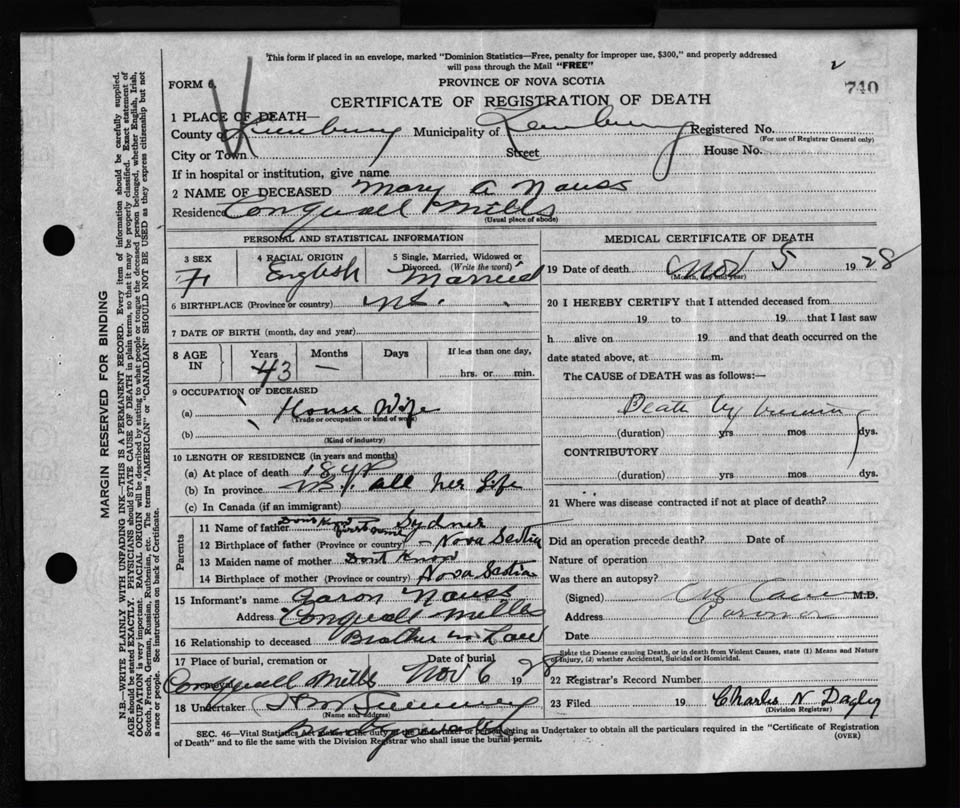 This form if placed in an envelope, marked "Dominion Statistics—Free, penalty for improper use, $300," and properly addressed
will pass through the Mail "FREE"
2
740
FORM 6.
PROVINCE OF NOVA SCOTIA
CERTIFICATE OF REGISTRATION OF DEATH
1 PLACE OF DEATH—
County of Lunenburg Municipality of Lunenburg Registered No.
(For use of Registrar General only)
City or Town Street House No.
If in hospital or institution, give name
2 NAME OF DECEASED Mary A Nauss
Residence Conquall Mills
(Usual place of abode)
PERSONAL AND STATISTICAL INFORMATION
3 SEX 4 RACIAL ORIGIN 5 Single, Married, Widowed or Divorced. (Write the word)
F English Married
6 BIRTHPLACE (Province or country) N.S.
7 DATE OF BIRTH (month, day and year)
8 AGE IN Years Months Days If less than one day,
43 — hrs. or min.
9 OCCUPATION OF DECEASED
(a) House Wife
(Trade or occupation or kind of work)
(b)
(Kind of industry)
10 LENGTH OF RESIDENCE (in years and months)
(a) At place of death 18 yr
(b) In province all her life
(c) In Canada (if an immigrant)
Parents
11 Name of father Dont Know first name Sydner
12 Birthplace of father (Province or country) — Nova Scotia
13 Maiden name of mother Dont Know
14 Birthplace of mother (Province or country) Nova Scotia
15 Informant's name Aaron Nauss
Address Conquall Mills
16 Relationship to deceased Brother in Law
17 Place of burial, cremation or Date of burial
Conquall Mills Nov 6 1928
18 Undertaker
(Name and address)
MEDICAL CERTIFICATE OF DEATH
19 Date of death Nov 5 1928
(Month, day and year)
20 I HEREBY CERTIFY that I attended deceased from
19 to 19 that I last saw
h alive on 19 and that death occurred on the
date stated above, at m.
The CAUSE of DEATH was as follows:—
Death by
(duration) yrs mos dys.
CONTRIBUTORY
(duration) yrs mos dys.
21 Where was disease contracted if not at place of death?
Did an operation precede death? Date of
Nature of operation
Was there an autopsy?
(Signed) M.D.
Address Coroner
Date
State the Disease causing Death, or in death from Violent Causes, state (1) Means and Nature
of Injury, (2) whether Accidental, Suicidal or Homicidal.
22 Registrar's Record Number
23 Filed 19 Charles N Dagley
(Division Registrar)
SEC. 46—Vital Statistics Act duty acting as Undertaker to obtain all the particulars required in the "Certificate of Registration
of Death" and to file the same with the Division Registrar who shall issue the burial permit.
(OVER)
MARGIN RESERVED FOR BINDING
N.B.—WRITE PLAINLY WITH UNFADING INK—THIS IS A PERMANENT RECORD. Every item of information should be carefully supplied.
AGE should be stated EXACTLY. PHYSICIANS should STATE CAUSE OF DEATH in plain terms, so that it may be properly classified. Exact statement of
OCCUPATION is very important. RACIAL ORIGIN will be described by stating to what people or tongue the deceased person belonged, whether English, Irish,
Scotch, French, German, Russian, Ruthenian, etc. The terms "AMERICAN" or "CANADIAN" SHOULD NOT BE USED as they express citizenship but not
a race or people. See instructions on back of Certificate.